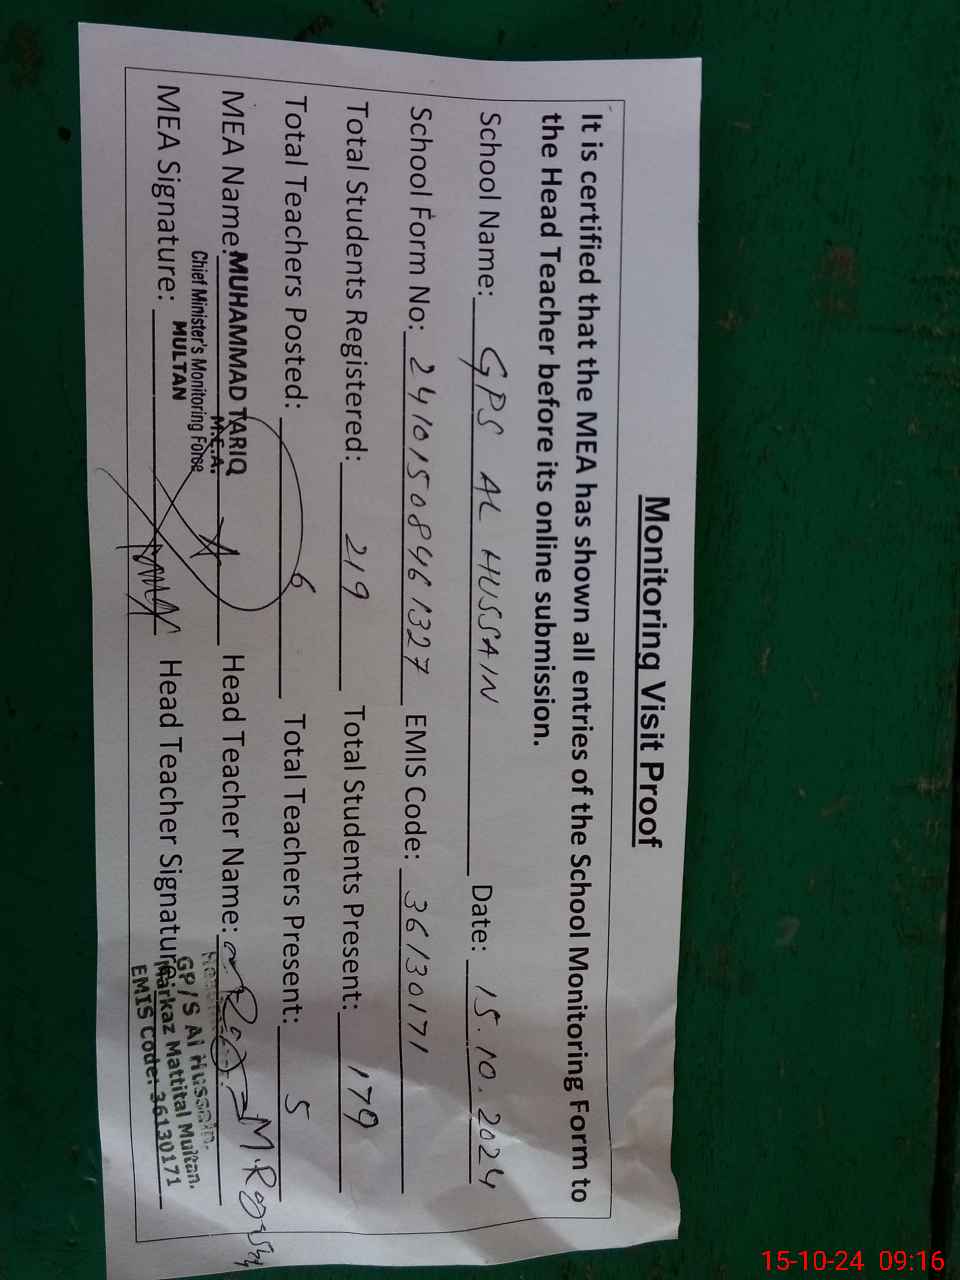 Monitoring Visit Proof
It is certified that the MEA has shown all entries of the School Monitoring Form to
the Head Teacher before its online submission.
School Name: GPS AL HUSSAIN Date: 15.10.2024
School Form No: 24101508461327 EMIS Code: 36130171
Total Students Registered: 219 Total Students Present: 179
Total Teachers Posted: 6 Total Teachers Present: 5
MEA Name: MUHAMMAD TARIQ Head Teacher Name:
M.E.A.
Chief Minister's Monitoring Force
MULTAN
MEA Signature: Head Teacher Signature:
GP/S Al Hussain.
Markaz Mattital Multan.
EMIS Code: 36130171
15-10-24 09:16